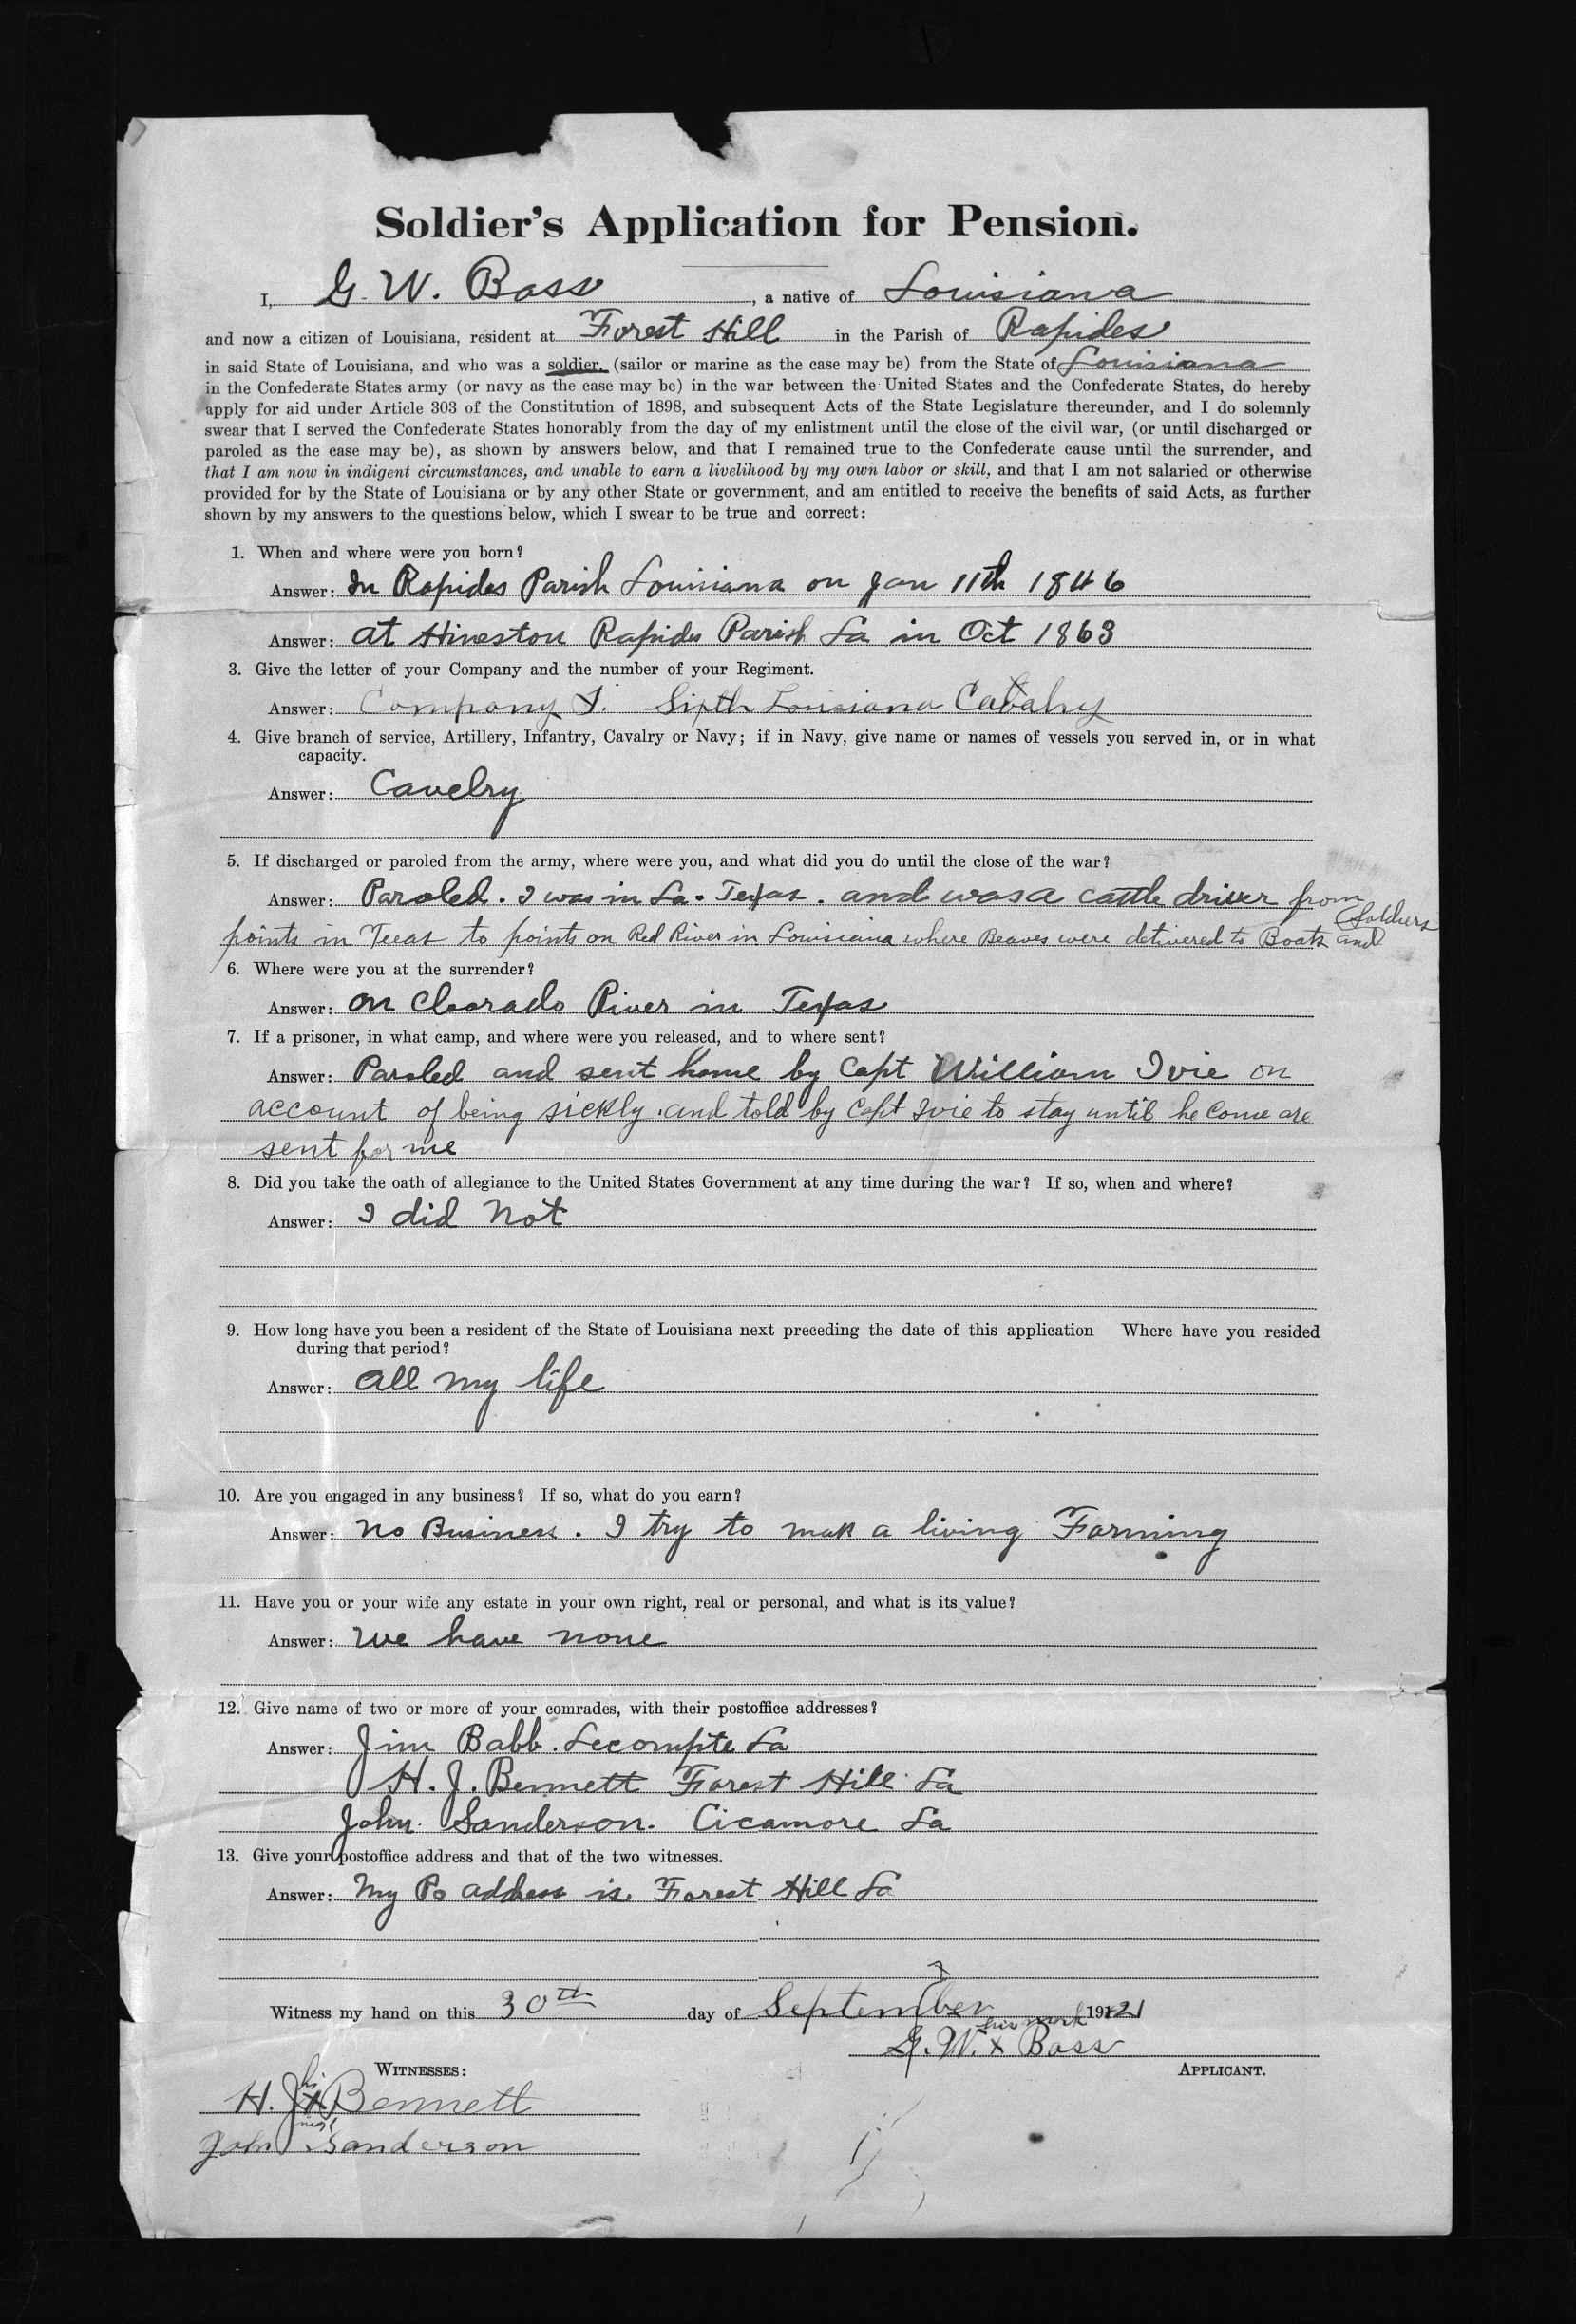 Soldier's Application for Pension.
I, G. W. Bass, a native of Louisiana
and now a citizen of Louisiana, resident at Forest Hill in the Parish of Rapides
in said State of Louisiana, and who was a soldier, (sailor or marine as the case may be) from the State of Louisiana
in the Confederate States army (or navy as the case may be) in the war between the United States and the Confederate States, do hereby
apply for aid under Article 303 of the Constitution of 1898, and subsequent Acts of the State Legislature thereunder, and I do solemnly
swear that I served the Confederate States honorably from the day of my enlistment until the close of the civil war, (or until discharged or
paroled as the case may be), as shown by answers below, and that I remained true to the Confederate cause until the surrender, and
that I am now in indigent circumstances, and unable to earn a livelihood by my own labor or skill, and that I am not salaried or otherwise
provided for by the State of Louisiana or by any other State or government, and am entitled to receive the benefits of said Acts, as further
shown by my answers to the questions below, which I swear to be true and correct:
1. When and where were you born?
Answer: In Rapides Parish Louisiana on Jan 11th 1846
Answer: at Hineston Rapides Parish La in Oct 1863
3. Give the letter of your Company and the number of your Regiment.
Answer: Company I. Sixth Louisiana Cavalry
4. Give branch of service, Artillery, Infantry, Cavalry or Navy; if in Navy, give name or names of vessels you served in, or in what
capacity.
Answer: Cavelry
5. If discharged or paroled from the army, where were you, and what did you do until the close of the war?
Answer: Paroled. I was in La. Texas. and was a cattle driver from
points in Texas to points on Red River in Louisiana where Beaves were delivered to Boats and Soldiers
6. Where were you at the surrender?
Answer: on Cloorado River in Texas
7. If a prisoner, in what camp, and where were you released, and to where sent?
Answer: Paroled and sent home by Capt William Ivie on
account of being sickly. and told by Capt Ivie to stay until he Come are
sent for me
8. Did you take the oath of allegiance to the United States Government at any time during the war? If so, when and where?
Answer: I did not
9. How long have you been a resident of the State of Louisiana next preceding the date of this application Where have you resided
during that period?
Answer: all my life
10. Are you engaged in any business? If so, what do you earn?
Answer: no Business. I try to mak a living Farming
11. Have you or your wife any estate in your own right, real or personal, and what is its value?
Answer: we have none
12. Give name of two or more of your comrades, with their postoffice addresses?
Answer: Jim Babb. Lecompte La
H. J. Bennett Forest Hill La
John Sanderson. Cicamore La
13. Give your postoffice address and that of the two witnesses.
Answer: My Po address is Forest Hill La
Witness my hand on this 30th day of September 1912
his mark
G. W. x Bass
WITNESSES: APPLICANT.
H. J. his x mark Bennett
John Sanderson